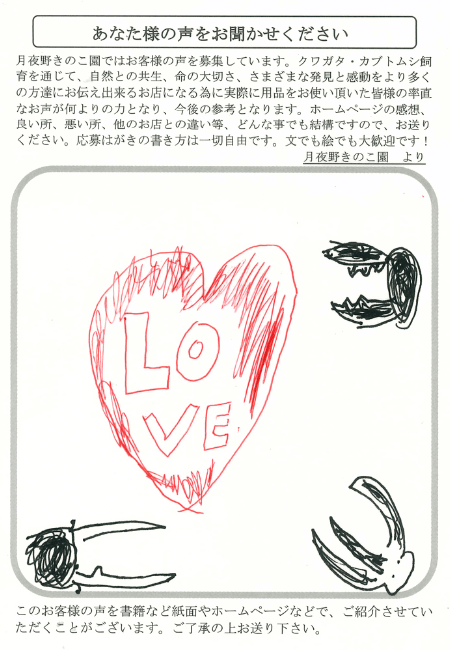 あなた様の声をお聞かせください
月夜野きのこ園ではお客様の声を募集しています。クワガタ・カブトムシ飼
育を通じて、自然との共生、命の大切さ、さまざまな発見と感動をより多く
の方達にお伝え出来るお店になる為に実際に用品をお使い頂いた皆様の率直
なお声が何よりの力となり、今後の参考となります。ホームページの感想、
良い所、悪い所、他のお店との違い等、どんな事でも結構ですので、お送り
ください。応募はがきの書き方は一切自由です。文でも絵でも大歓迎です！
月夜野きのこ園　より
LO
VE
このお客様の声を書籍など紙面やホームページなどで、ご紹介させてい
ただくことがございます。ご了承の上お送り下さい。